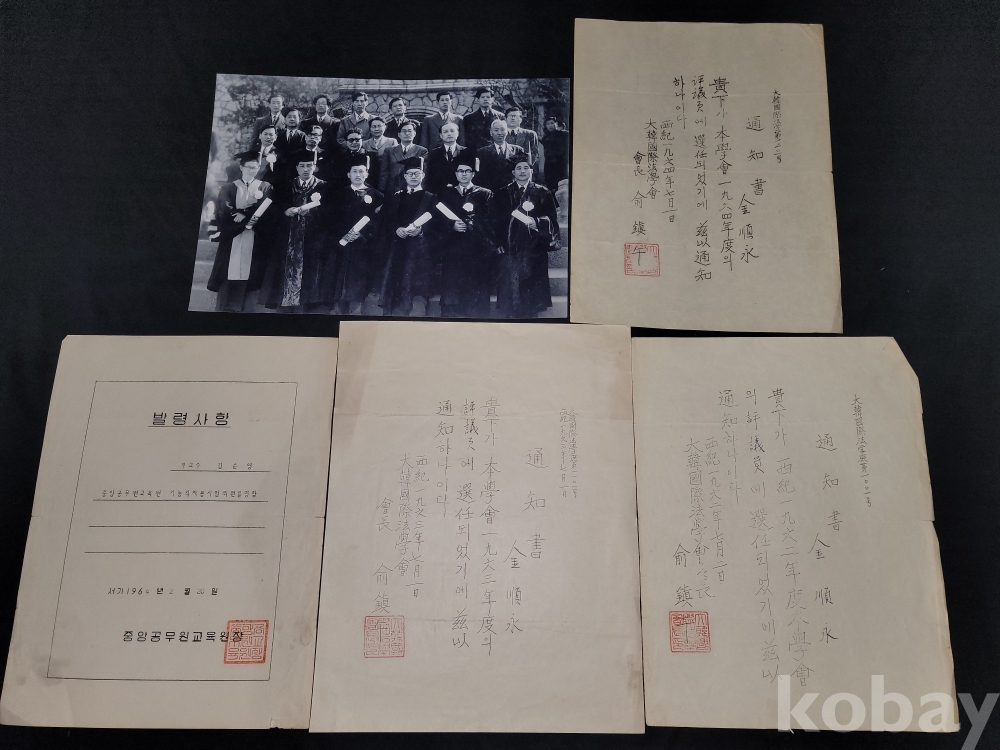 大韓國際法第二二号
通知書
金順永
貴下가 本學會 一九六四年度의
評議員에 選任되었기에 玆以通知
하나이다
西紀一九六四年七月一日
大韓國際法學會
會長 俞鎭午
발령사항
부교수 김순영
중앙공무원교육원
서기1964년 2월 20일
중앙공무원교육원장
通知書
金順永
貴下가 本學會 一九六三年度의
評議員에 選任되었기에 玆以
通知하나이다
西紀一九六三年七月一日
大韓國際法學會
會長 俞鎭午
通知書
金順永
貴下가 西紀一九六二年度 本學會
의 評議員에 選任되었기에 玆以
通知하나이다
西紀一九六二年七月一日
大韓國際法學會會長
俞鎭午
kobay